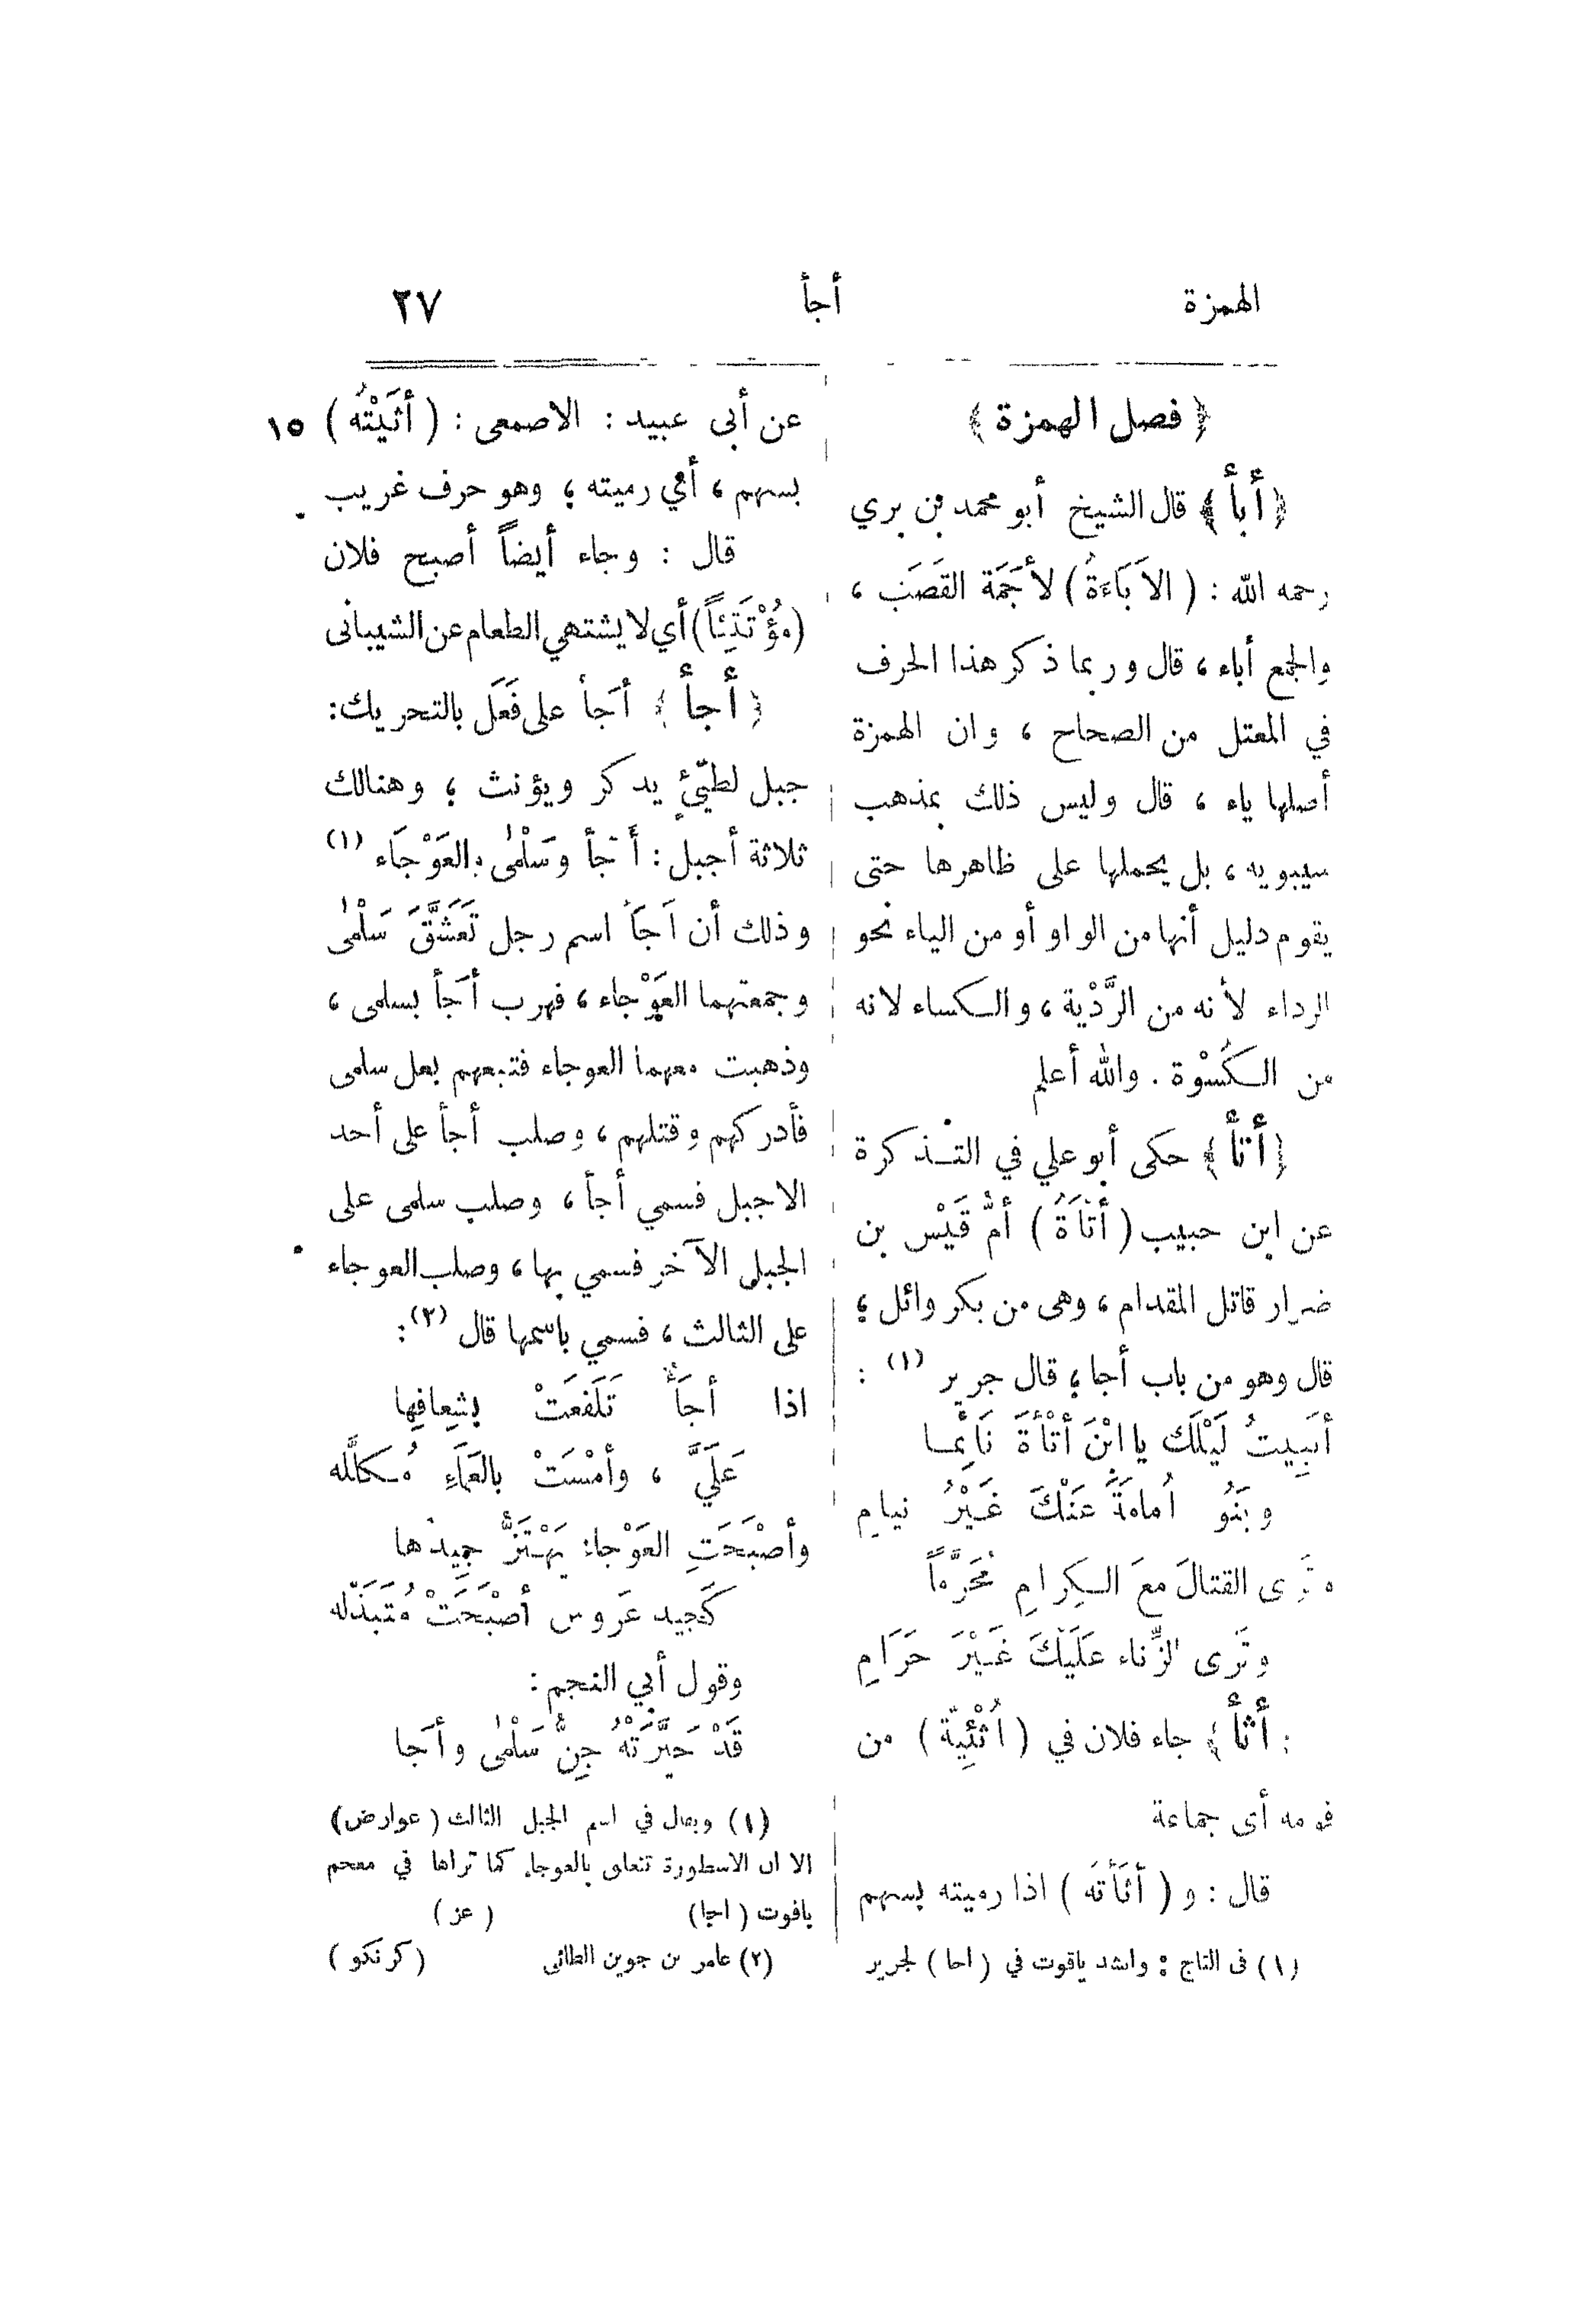 الهمزة أجأ ٢٧
﴿ فصل الهمزة ﴾
﴿ أبأ ﴾ قال الشيخ أبو محمد بن بري
رحمه الله : ( الأَبَاءَةُ ) لأَجَمَة القَصَب ،
والجمع أباء ، قال وربما ذكر هذا الحرف
في المعتل من الصحاح ، وان الهمزة
أصلها ياء ، قال وليس ذلك بمذهب
سيبويه ، بل يحملها على ظاهرها حتى
يقوم دليل أنها من الواو أو من الياء نحو
الرداء لأنه من الرَّدْية ، والكساء لانه
من الكُسْوة . والله أعلم
﴿ أتأ ﴾ حكى أبو علي في التذكرة
عن ابن حبيب ( أَتَأَةُ ) أمُّ قَيْس بن
ضرار قاتل المقدام ، وهى من بكر وائل ؛
قال وهو من باب أجا ؛ قال جرير (١) :
أتَبِيتُ لَيْلَكَ يا ابْنَ أتْأةَ نَائِما
وبَنُو أُمامَةَ عَنْكَ غَيْرُ نيامِ
وتَرى القتالَ معَ الكِرامِ مُحَرَّماً
وتَرى الزِّناء عَلَيْكَ غَيْرَ حَرَامِ
﴿ أثأ ﴾ جاء فلان في ( أُثْئِيَّة ) من
قومه أى جماعة
قال : و ( أثَأْتُه ) اذا رميته بسهم
(١) فى التاج : وانشد ياقوت في ( اجا ) لجرير
عن أبى عبيد : الاصمعى : ( أثَيْتُه ) ١٥
بسهم ، أي رميته ؛ وهو حرف غريب .
قال : وجاء أيضاً أصبح فلان
( مُؤْتَثِئاً ) أي لا يشتهي الطعام عن الشيبانى
﴿ أجأ ﴾ أجَأ على فَعَل بالتحريك :
جبل لطيّئٍ يذكر ويؤنث ؛ وهنالك
ثلاثة أجبل : أَجَأ وسَلْمٰى والعَوْجَاء (١)
وذلك أن أَجَأ اسم رجل تَعَشَّقَ سَلْمٰى
وجمعتهما العَوْجاء ، فهرب أجَأ بسلمى ،
وذهبت معهما العوجاء فتبعهم بعل سلمى
فأدركهم وقتلهم ، وصلب أجأ على أحد
الاجبل فسمي أجأ ، وصلب سلمى على
الجبل الآخر فسمي بها ، وصلب العوجاء
على الثالث ، فسمي باسمها قال (٢) :
اذا أجَأٌ تَلَفعَتْ بشِعافِها
عَلَيَّ ، وأمْسَتْ بالعَمَاءِ مُكَلَّله
وأصْبَحَتِ العَوْجاءُ يَهْتَزُّ جِيدُها
كَجِيد عَروس أصْبَحَتْ مُتَبَذّله
وقول أبي النجم :
قَدْ حَيَّرَتْهُ جِنُّ سَلْمٰى وأجَا
(١) ويقال في اسم الجبل الثالث ( عوارض )
الا ان الاسطورة تتعلق بالعوجاء كما تراها في معجم
ياقوت ( اجا ) ( عز )
(٢) عامر بن جوين الطائى ( كرنكو )